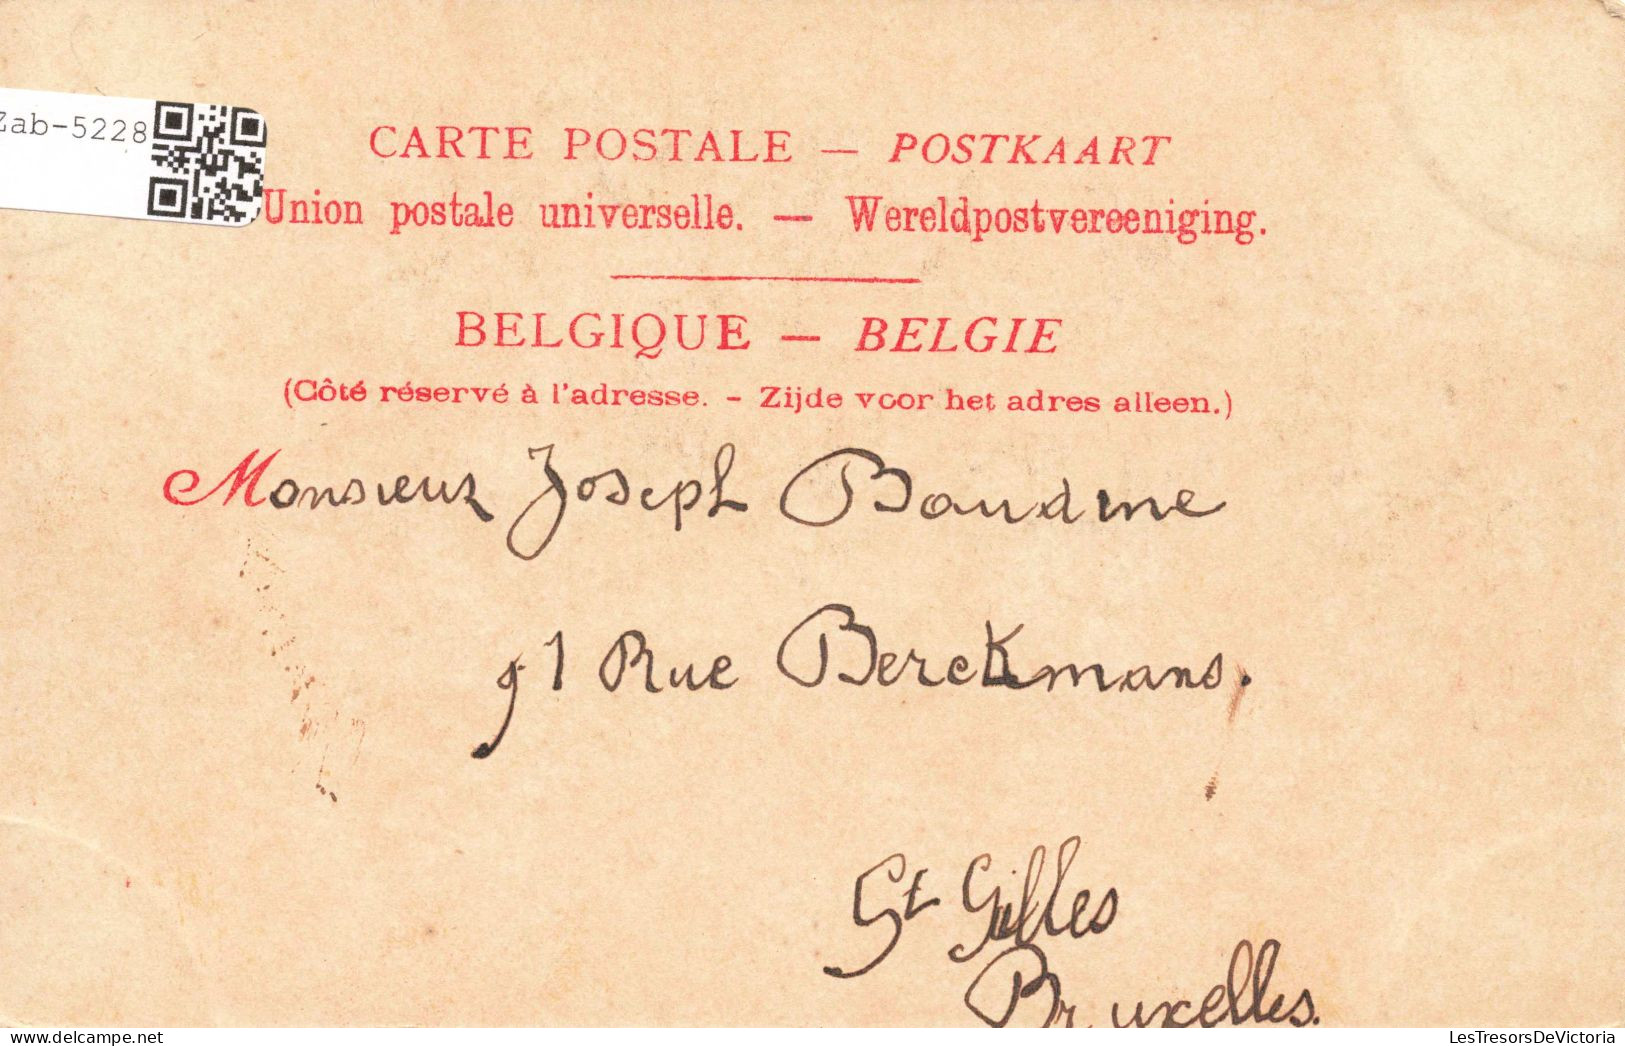 Zab-5228
CARTE POSTALE — POSTKAART
Union postale universelle. — Wereldpostvereeniging.
BELGIQUE — BELGIE
(Côté réservé à l'adresse. - Zijde voor het adres alleen.)
Monsieur Joseph Baudine
91 Rue Berckmans.
St Gilles
Bruxelles.
LesTresorsDeVictoria